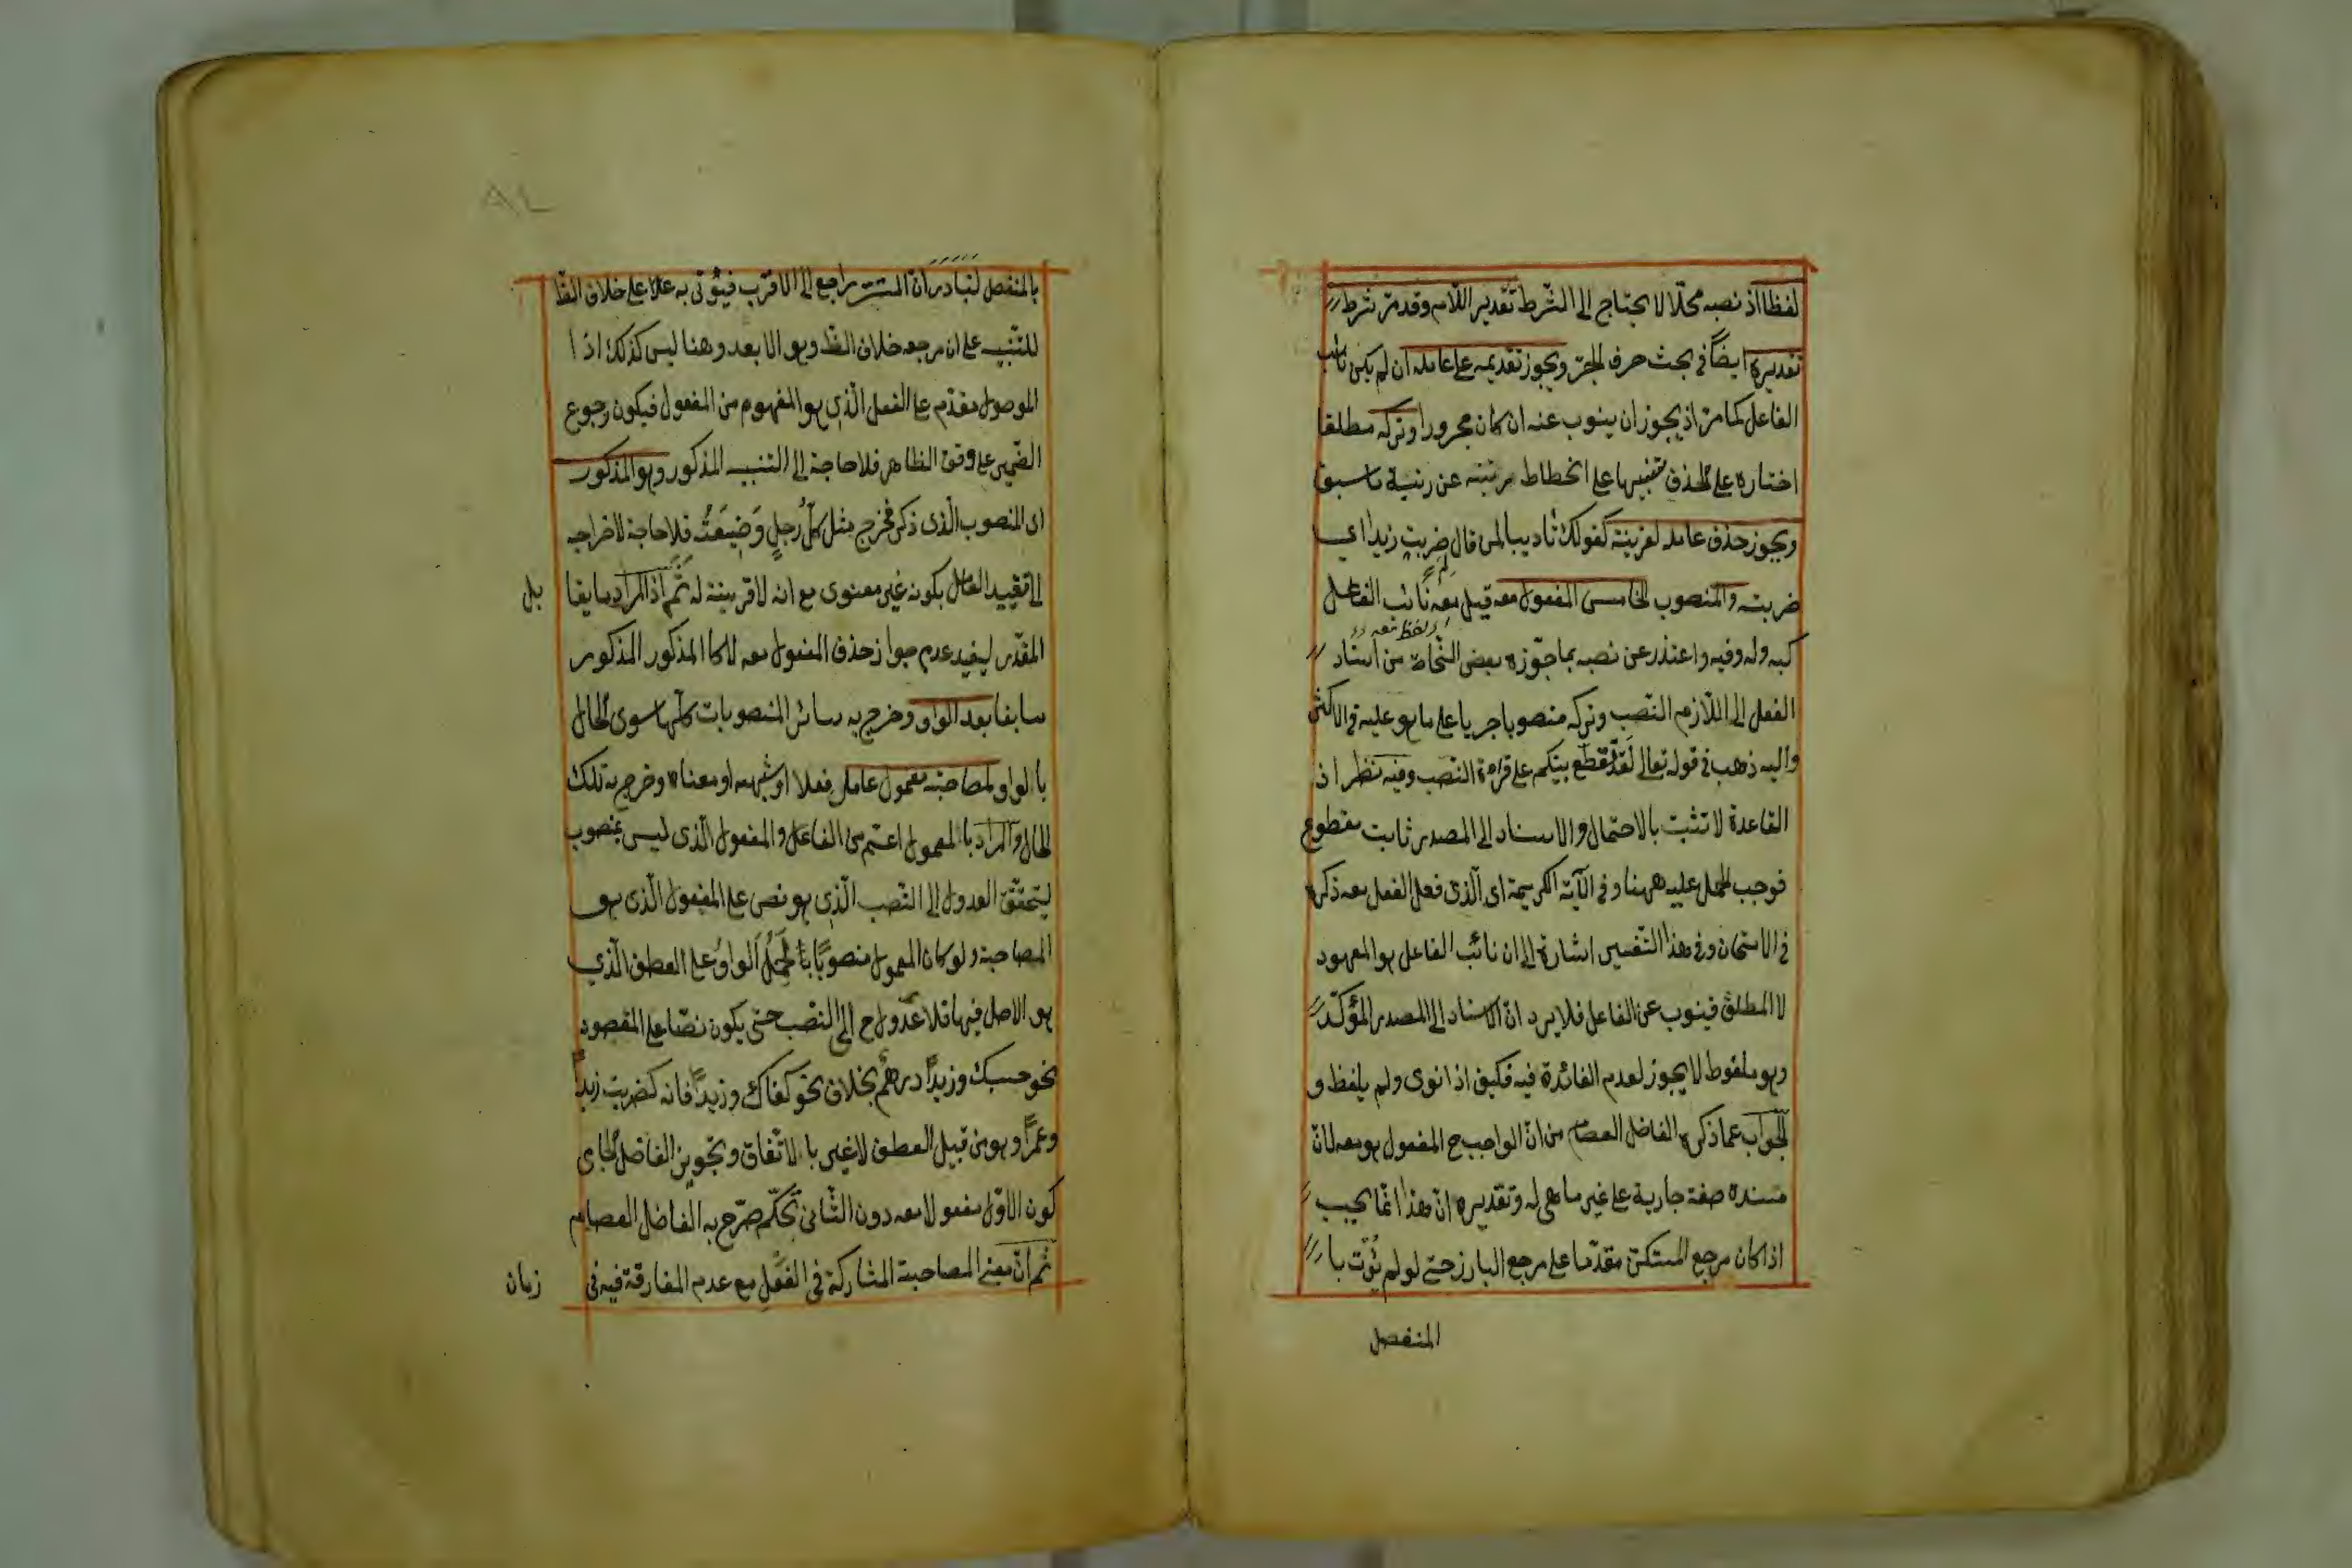 لفظا اذ نصبه محلّا لا يحتاج الى الشّرط تقدير اللّام وقد مرّ شرط
تقديره ايضاً فى بحث حرف الجرّ ويجوز تقديمه على عامله ان لم يكن نائب
الفاعل كما مرّ اذ يجوز ان ينوب عنه ان كان مجرورا وتركه مطلقا
اختاره على الحذف تنبيها على انحطاط مرتبته عن رتبة ما سبق
ويجوز حذف عامله لقرينة كقولك تأديبا لمن قال لم ضربت زيدا اى
ضربته والمنصوب الخامس المفعول معه قيل معه نائب الفاعل
اى لفظ معه
كبه وله وفيه واعتذر عن نصبه بما جوّزه بعض النّحاة من اسناد
الفعل الى اللّازم النّصب وتركه منصوبا جريا على ما هو عليه فى الاكثر
واليه ذهب فى قوله تعالى لقد تقطّع بينكم على قراءة النّصب وفيه نظر اذ
القاعدة لا تثبت بالاحتمال والاسناد الى المصدر ثابت مقطوع
فوجب الحمل عليه ههنا وفى الآية الكريمة اى الّذى فعل الفعل معه ذكره
فى الامتحان وفى هذا التّفسير اشارة الى ان نائب الفاعل هو المعهود
لا المطلق فينوب عن الفاعل فلا يرد انّ الاسناد الى المصدر المؤكّد
وهو ملفوظ لا يجوز لعدم الفائدة فيه فكيف اذا نوى ولم يلفظ و
الجواب عما ذكره الفاضل العصام من انّ الواجب ح المفعول هو معه لانّ
مسنده صفة جارية على غير ما هى له وتقديره انّ هذا انّما يجب
اذا كان مرجع المستكنّ مقدّما على مرجع البارز حتى لو لم يؤت با
المنفصل
بالمنفصل لتبادر انّ المستتر راجع الى الاقرب فيؤتى به علاما على خلاف الظ
للتّنبيه على ان مرجعه خلاف الظّ وهو الابعد وهنا ليس كذلك اذ ا
الموصول مقدّم على الفعل الّذى هو المفهوم من المفعول فيكون رجوع
الضّمير على وفق الظاهر فلا حاجة الى التنبيه المذكور وهو المذكور
اى المنصوب الّذى ذكر فخرج مثل كلّ رجلٍ وضيعتُه فلا حاجة لاخراجه
الى تقييد العامل بكونه غير معنوى مع انه لا قرينة له ثمّ اذ المراد سابقا
بل
المقدّر ليفيد عدم جواز حذف المفعول معه لا كما المذكور المذكور
سابقا بعد الواو وخرج به سائر المنصوبات كلّها سوى الحال
بالواو لمصاحبة معمول عامل فعلا او شبهه او معناه وخرج به تلك
الحال والمراد بالمعمول اعمّ من الفاعل والمفعول الّذى ليس بمنصوب
ليتحقّق العدول الى النّصب الّذى هو نص على المفعول الّذى هو
المصاحبة ولو كان المعمول منصوبًا يُحمَل الواو على العطف الّذى
هو الاصل فيها فلا عدول ح الى النّصب حتى يكون نصّا على المقصود
نحو حسبك وزيداً درهم بخلاف نحو كفاك وزيداً فانه كضربت زيداً
وعمراً وهو من قبيل العطف لا غير بالاتّفاق وتجويز الفاضل الجامى
كون الاوّل مفعولا معه دون الثّانى تحكّم صرّح به الفاضل العصام
ثم انّ معنى المصاحبة المشاركة فى الفعل مع عدم المفارقة فيه فى
زمان